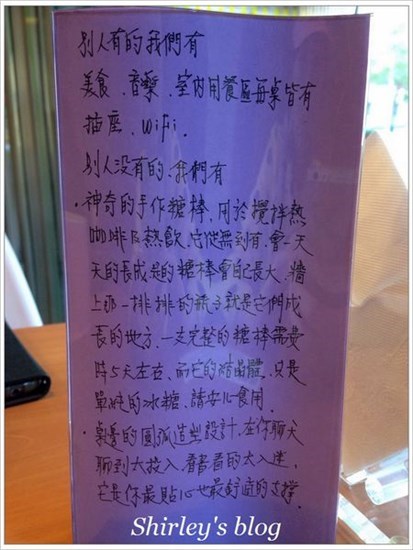 別人有的我們有
美食、音樂、室內用餐區每桌皆有
插座、wifi.
別人沒有的、我們有
・神奇的手作糖棒,用於攪拌熱
咖啡及熱飲,它從無到有,會一天
天的長成是的糖棒會自己長大,牆
上那一排排的瓶子就是它們成
長的地方,一支完整的糖棒需費
時5天左右、而它的結晶體,只是
單純的冰糖,請安心食用.
・桌邊的圓弧造型設計,在你聊天
聊到太投入、看書看的太入迷,
它是你最貼心也最舒適的支撐.
Shirley's blog